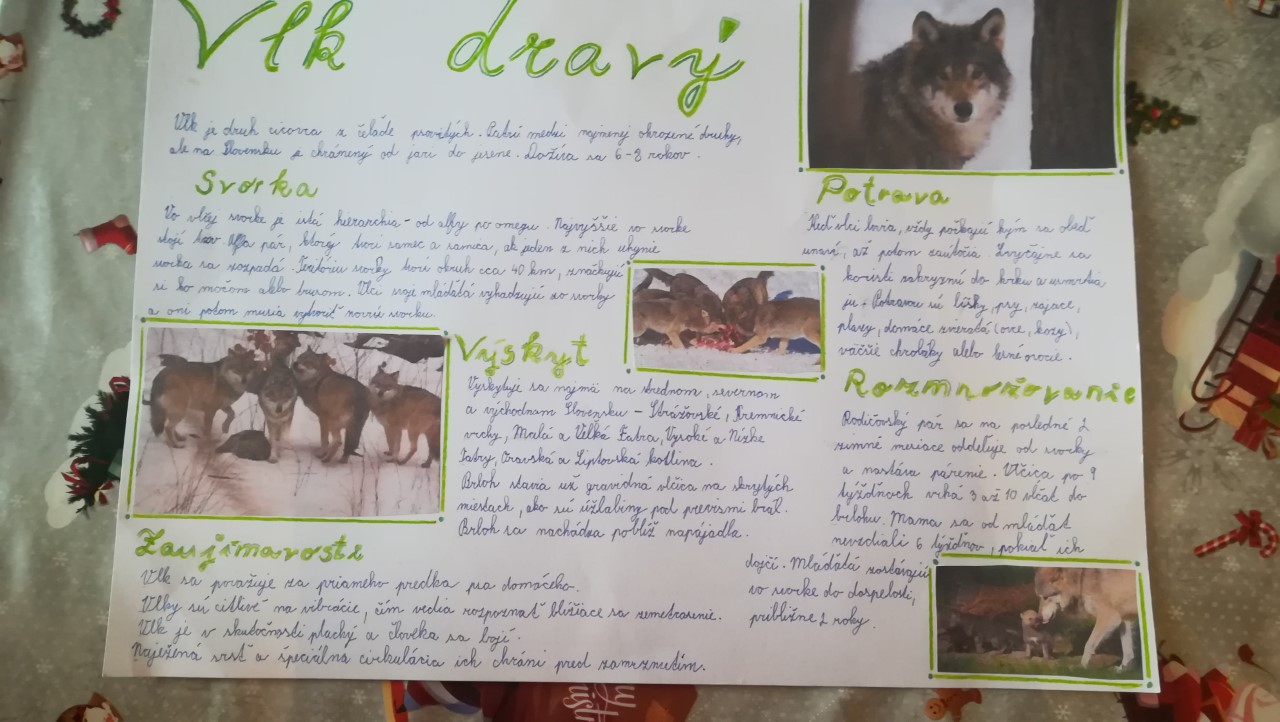 Vlk dravý
Vlk je druh cicavca z čeľade psovitých. Patrí medzi najmenej ohrozené druhy,
ale na Slovensku je chránený od jari do jesene. Dožíva sa 6-8 rokov.
Svorka
Vo vlčej svorke je istá hierarchia - od alfy po omegu. Najvyššie vo svorke
stojí alfa pár, ktorý tvorí samec a samica, ak jeden z nich uhynie
svorka sa rozpadá. Teritóriu svorky tvorí okruh cca 40 km, značkujú
si ho močom alebo trusom. Vlci svoje mláďatá vyhadzujú zo svorky
a oni potom musia vytvoriť novú svorku.
Potrava
Keď vlci lovia, vždy počkajú kým sa obeť
unaví, až potom zaútočia. Zvyčajne sa
koristi zahryznú do krku a usmrtia
ju. Potravou sú líšky, psy, zajace,
plazy, domáce zvieratá (ovce, kozy),
väčšie chrobáky alebo lesné ovocie.
Výskyt
Vyskytuje sa najmä na strednom, severnom
a východnom Slovensku - Strážovské, Kremnické
vrchy, Malá a Veľká Fatra, Vysoké a Nízke
Tatry, Oravská a Liptovská kotlina.
Brloh stavia už gravidná vlčica na skrytých
miestach, ako sú úžľabiny pod prevismi brál.
Brloh sa nachádza poblíž napájadla.
Rozmnožovanie
Rodičovský pár sa na posledné 2
zimné mesiace oddeľuje od svorky
a nastáva párenie. Vlčica po 9
týždňoch vrhá 3 až 10 vlčat do
brlohu. Mama sa od mláďat
nevzdiali 6 týždňov, pokiaľ ich
dojčí. Mláďatá zostávajú
vo svorke do dospelosti,
približne 2 roky.
Zaujímavosti
Vlk sa považuje za priameho predka psa domáceho.
Vlky sú citlivé na vibrácie, čím vedia rozpoznať blížiace sa zemetrasenie.
Vlk je v skutočnosti plachý a človeka sa bojí.
Naježená srsť a špeciálna cirkulácia ich chráni pred zamrznutím.